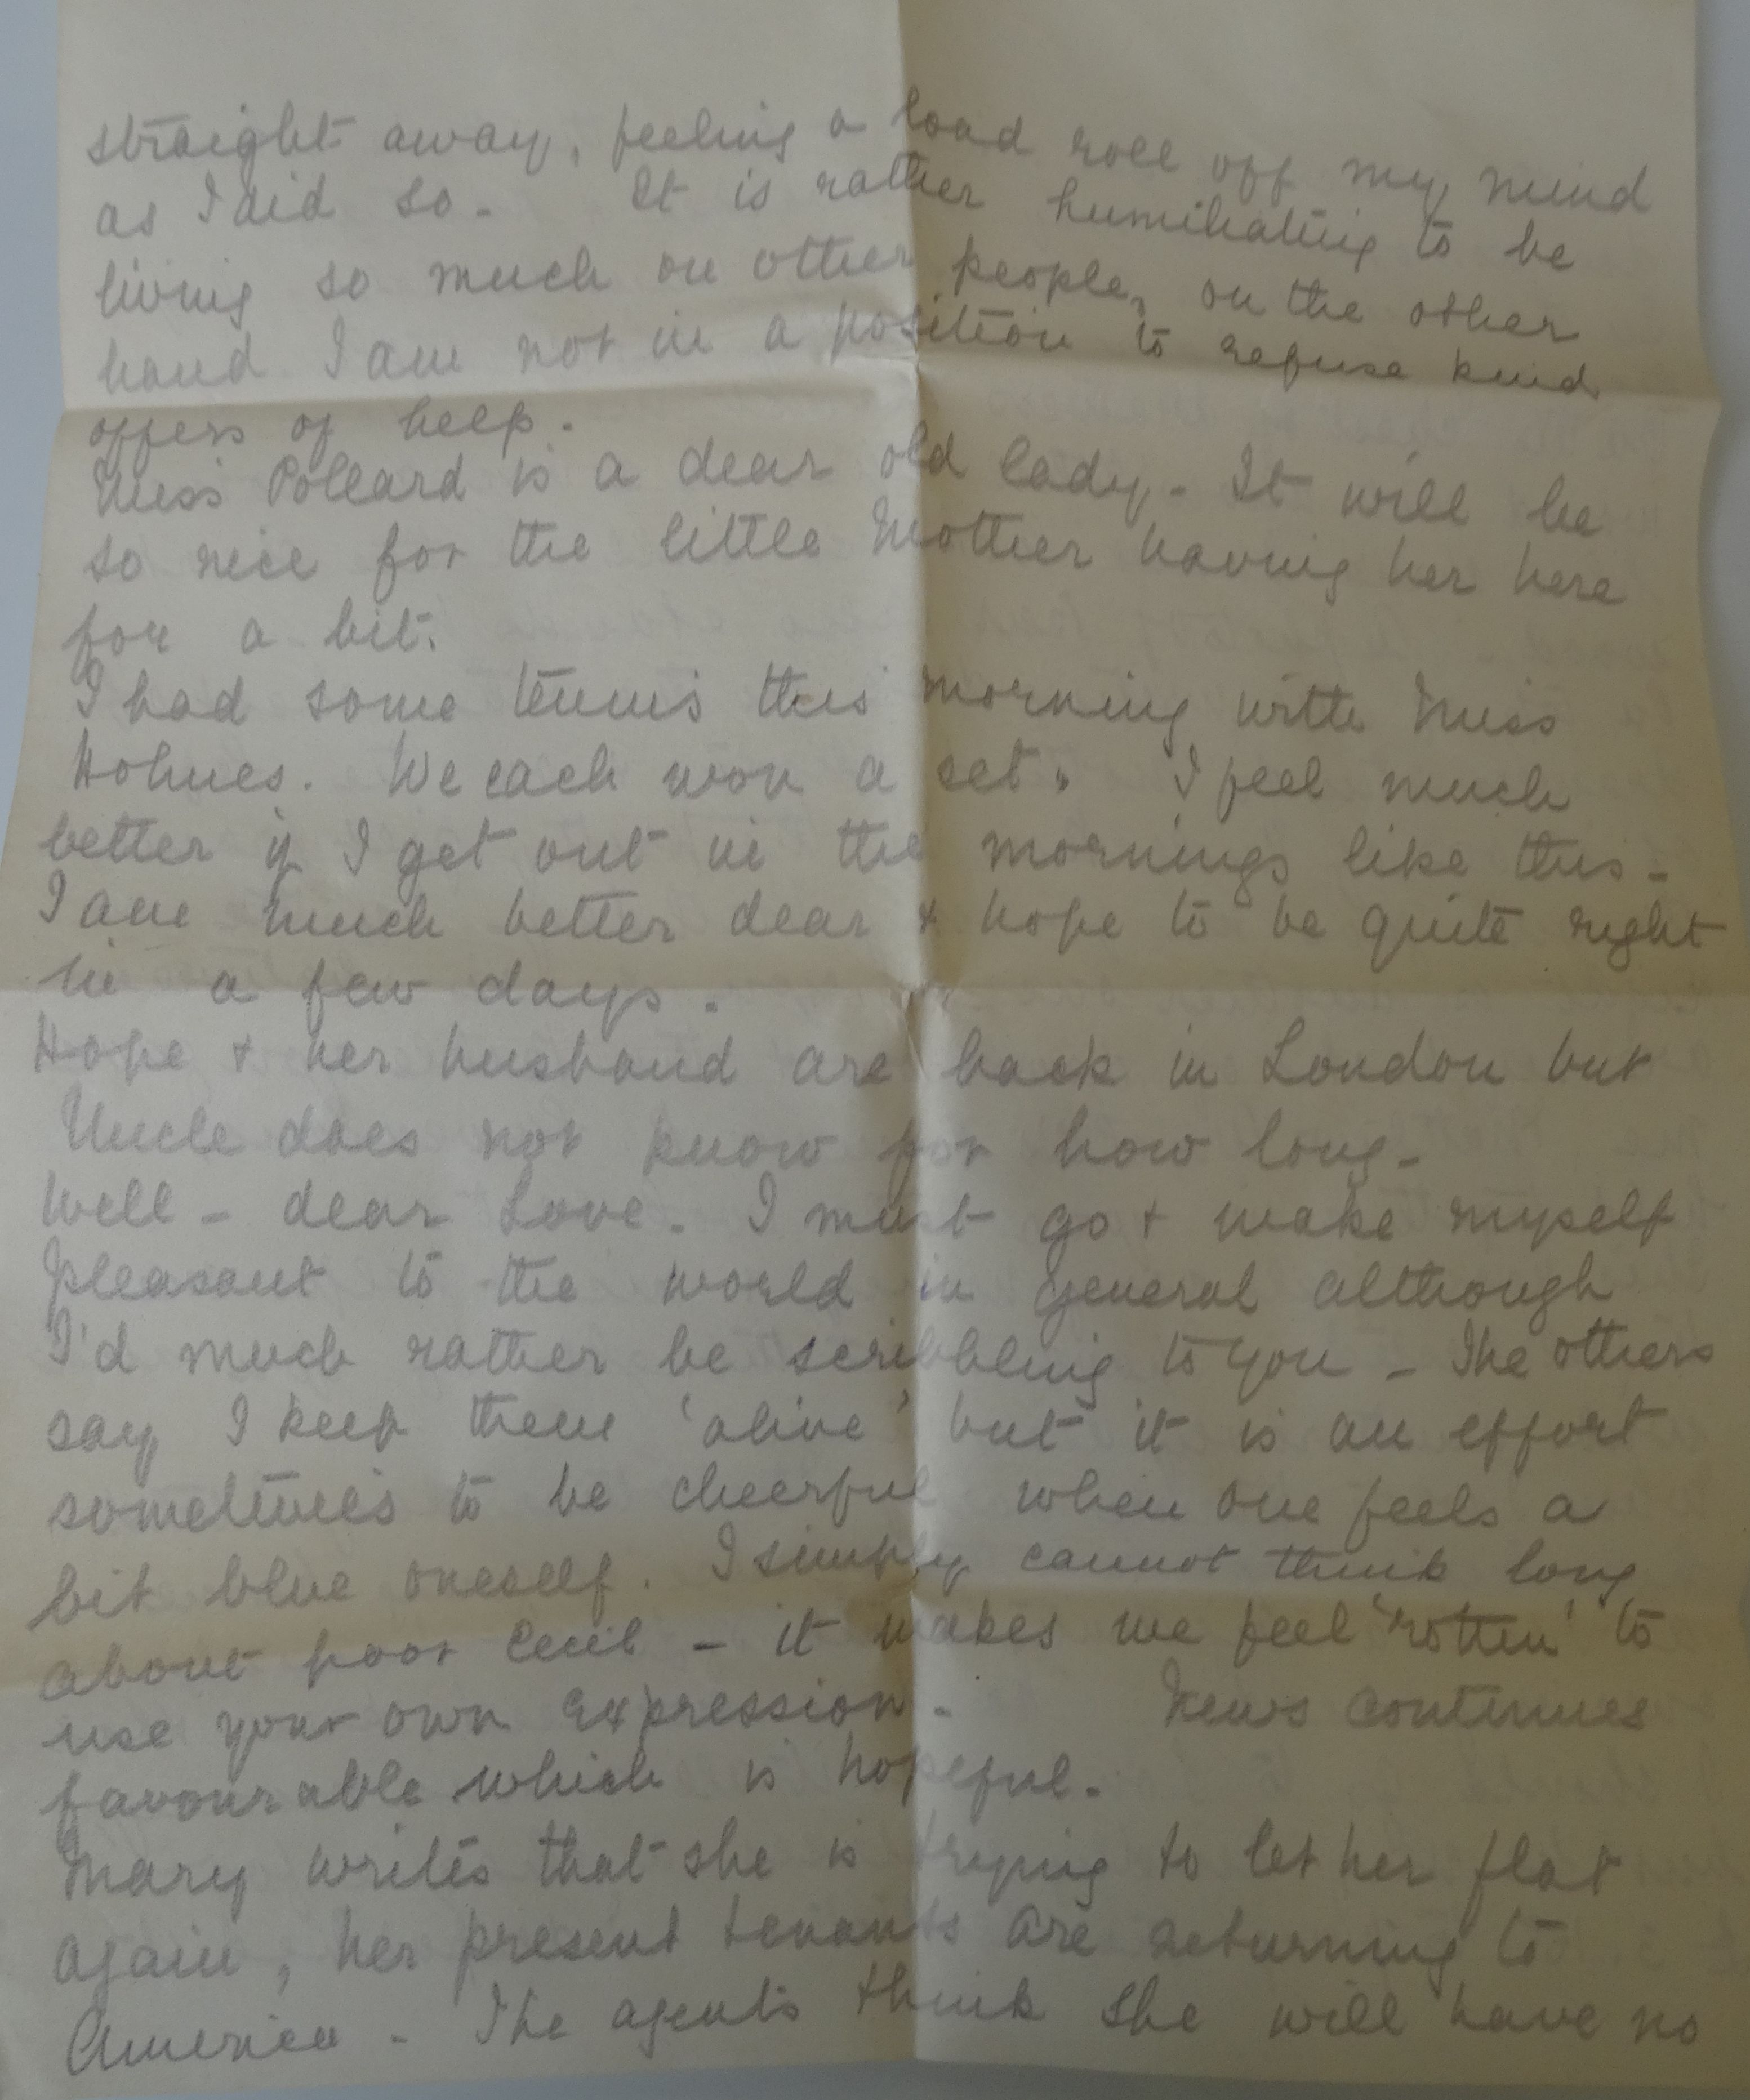 straight away, feeling a load roll off my mind
as I did so - It is rather humiliating to be
living so much on other people, on the other
hand I am not in a position to refuse kind
offers of help.
Miss Pollard is a dear old lady - It will be
so nice for the little Mother having her here
for a bit.
I had some tennis this morning with Miss
Holmes. We each won a set. I feel much
better if I get out in the mornings like this -
I am much better dear & hope to be quite right
in a few days.
Hope & her husband are back in London but
Uncle does not know for how long -
Well - dear Love - I must go & make myself
pleasant to the world in general although
I'd much rather be scribbling to you - The others
say I keep them 'alive' but it is an effort
sometimes to be cheerful when one feels a
bit blue oneself. I simply cannot think long
about poor Cecil - it makes me feel 'rotten' to
use your own expression - News continues
favourable which is hopeful -
Mary writes that she is trying to let her flat
again, her present tenants are returning to
America - The agents think she will have no